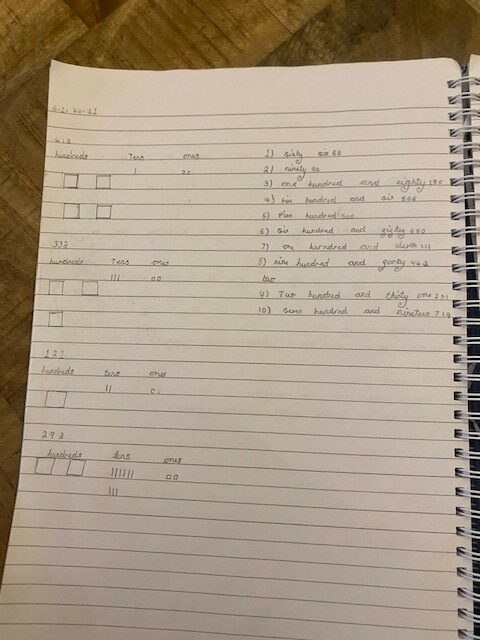 6.1.20.21
412
hundreds Tens ones
332
hundreds Tens ones
122
hundreds tens ones
292
hundreds tens ones
1) sixty six 66
2) ninety 90
3) one hundred and eighty 180
4) and six
5) five hundred 500
6) six hundred and eighty 680
7) one hundred and eleven 111
8) nine hundred and forty 942
two
9) Two hundred and thirty one 231
10) Seven hundred and nineteen 719